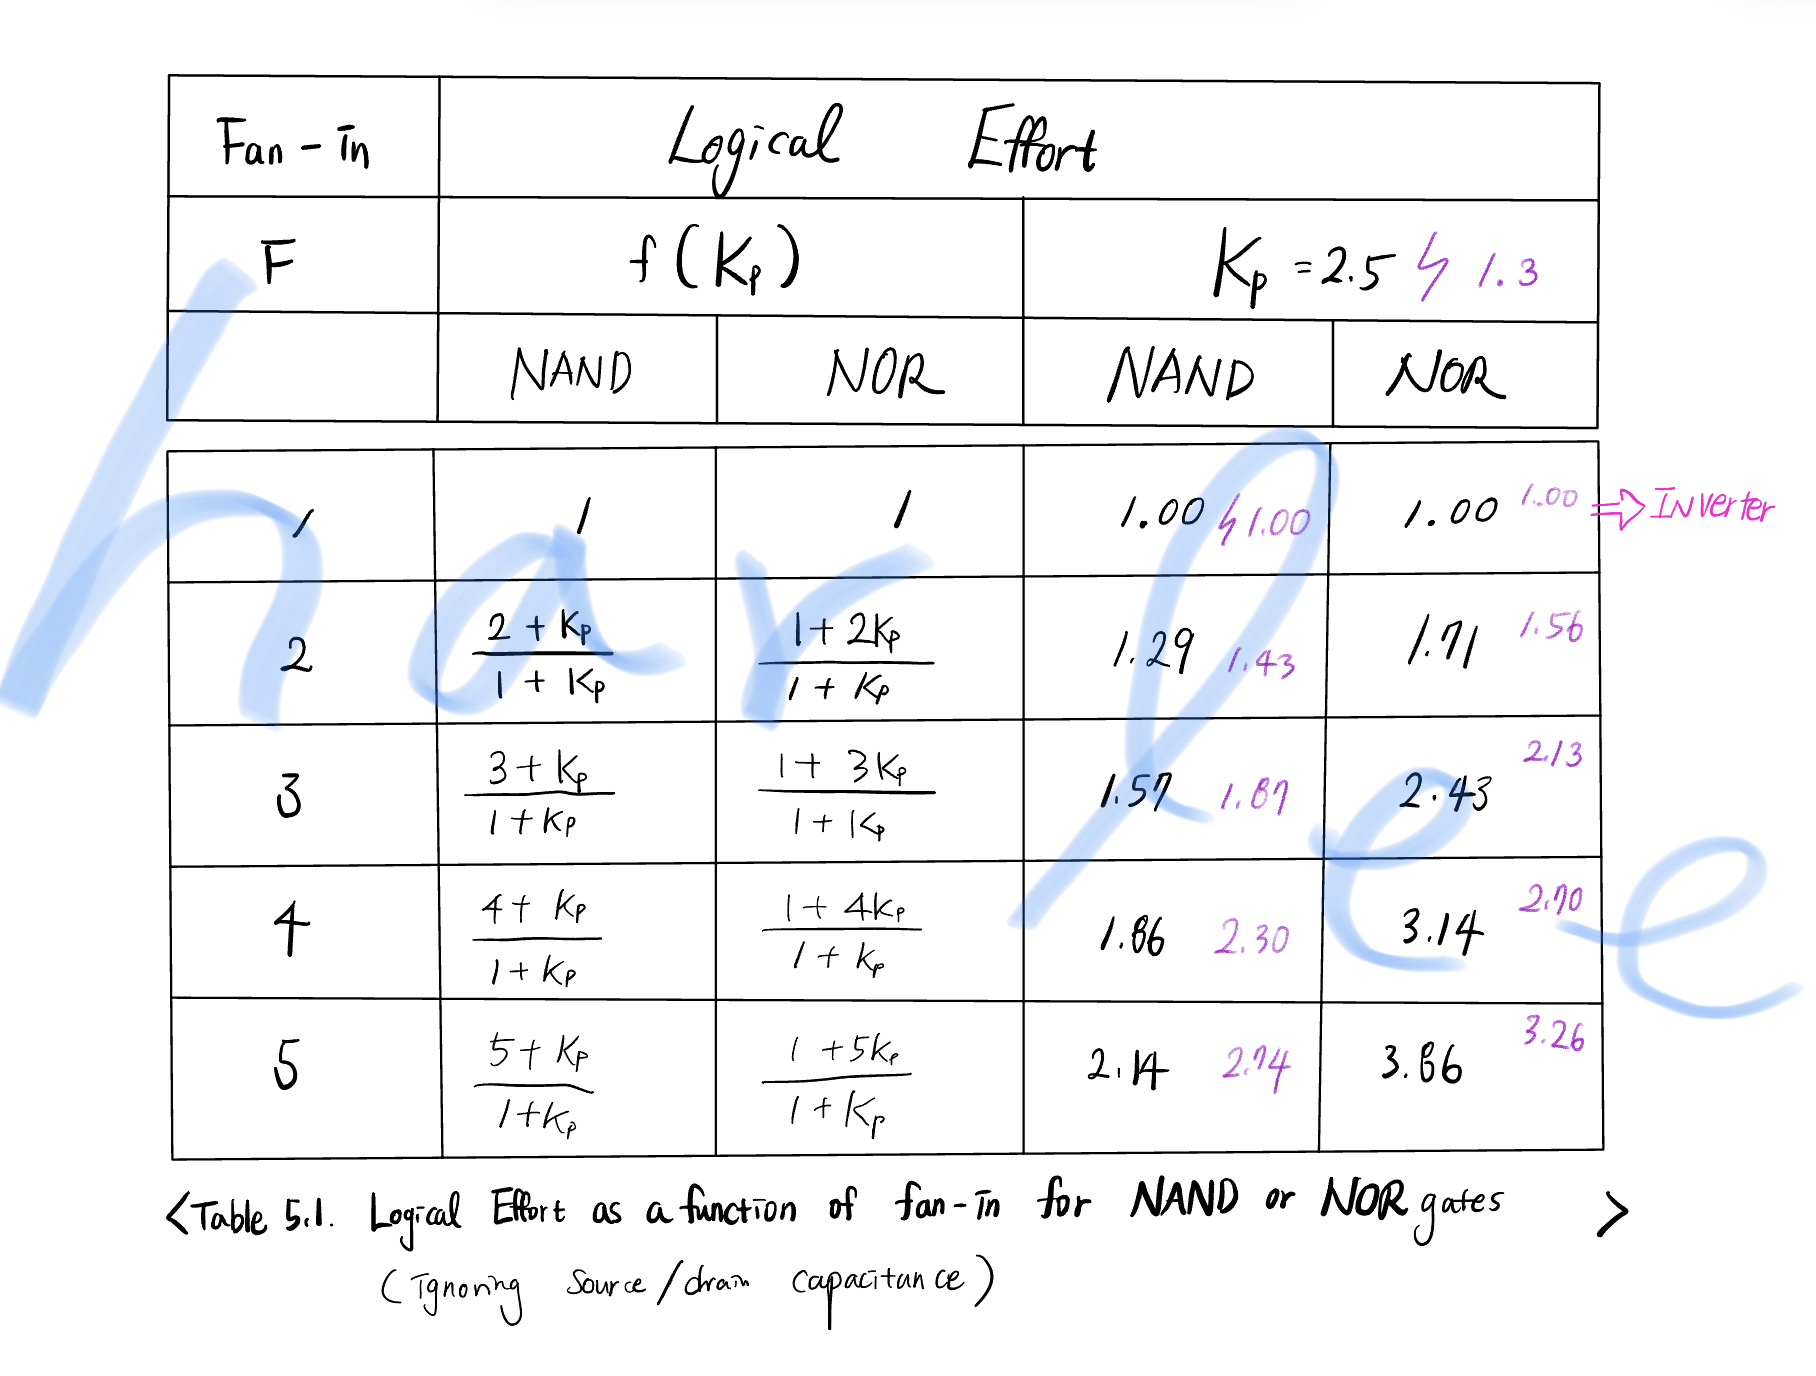 Fan-in Logical Effort
F f(Kp) Kp = 2.5 ϟ 1.3
NAND NOR NAND NOR
1 1 1 1.00 ϟ 1.00 1.00 1.00 ⇒ Inverter
2 2 + Kp / 1 + Kp 1 + 2Kp / 1 + Kp 1.29 1.43 1.71 1.56
3 3 + Kp / 1 + Kp 1 + 3Kp / 1 + Kp 1.57 1.87 2.43 2.13
4 4 + Kp / 1 + Kp 1 + 4Kp / 1 + Kp 1.86 2.30 3.14 2.70
5 5 + Kp / 1 + Kp 1 + 5Kp / 1 + Kp 2.14 2.74 3.86 3.26
<Table 5.1. Logical Effort as a function of fan-in for NAND or NOR gates >
(Ignoring source/drain capacitance)
harlee